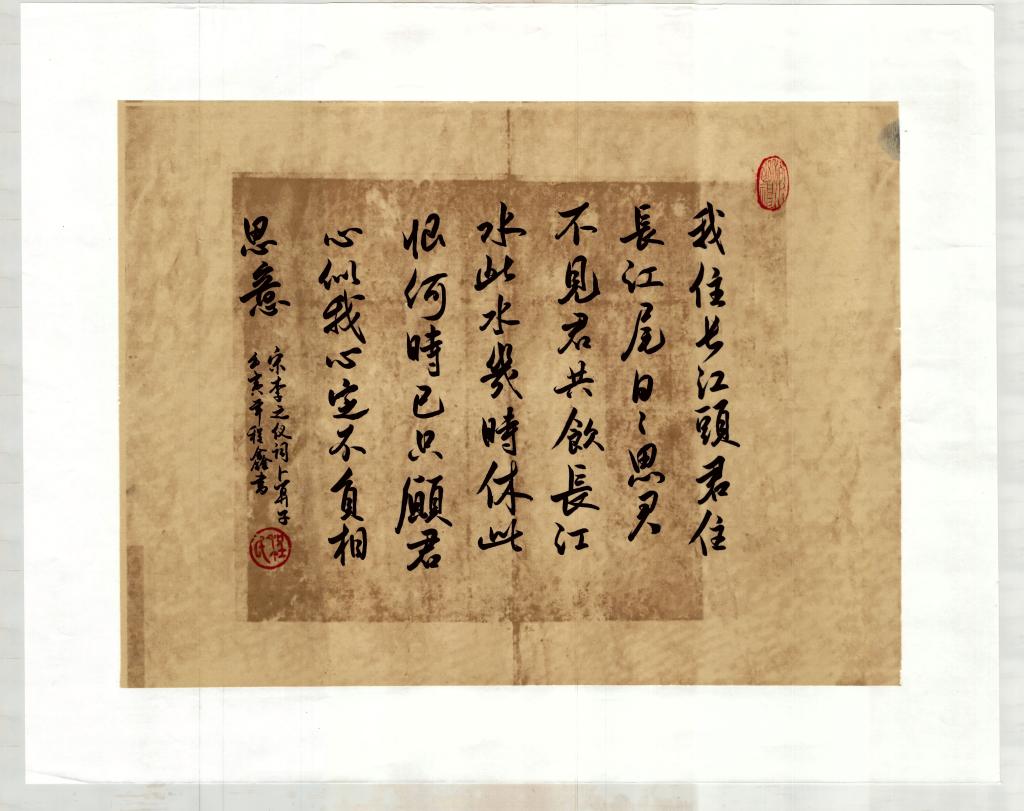 我住长江頭君住
長江尾日〻思君
不見君共飲長江
水此水幾時休此
恨何時已只願君
心似我心定不負相
思意
宋李之仪词卜算子
亥年程鑫書